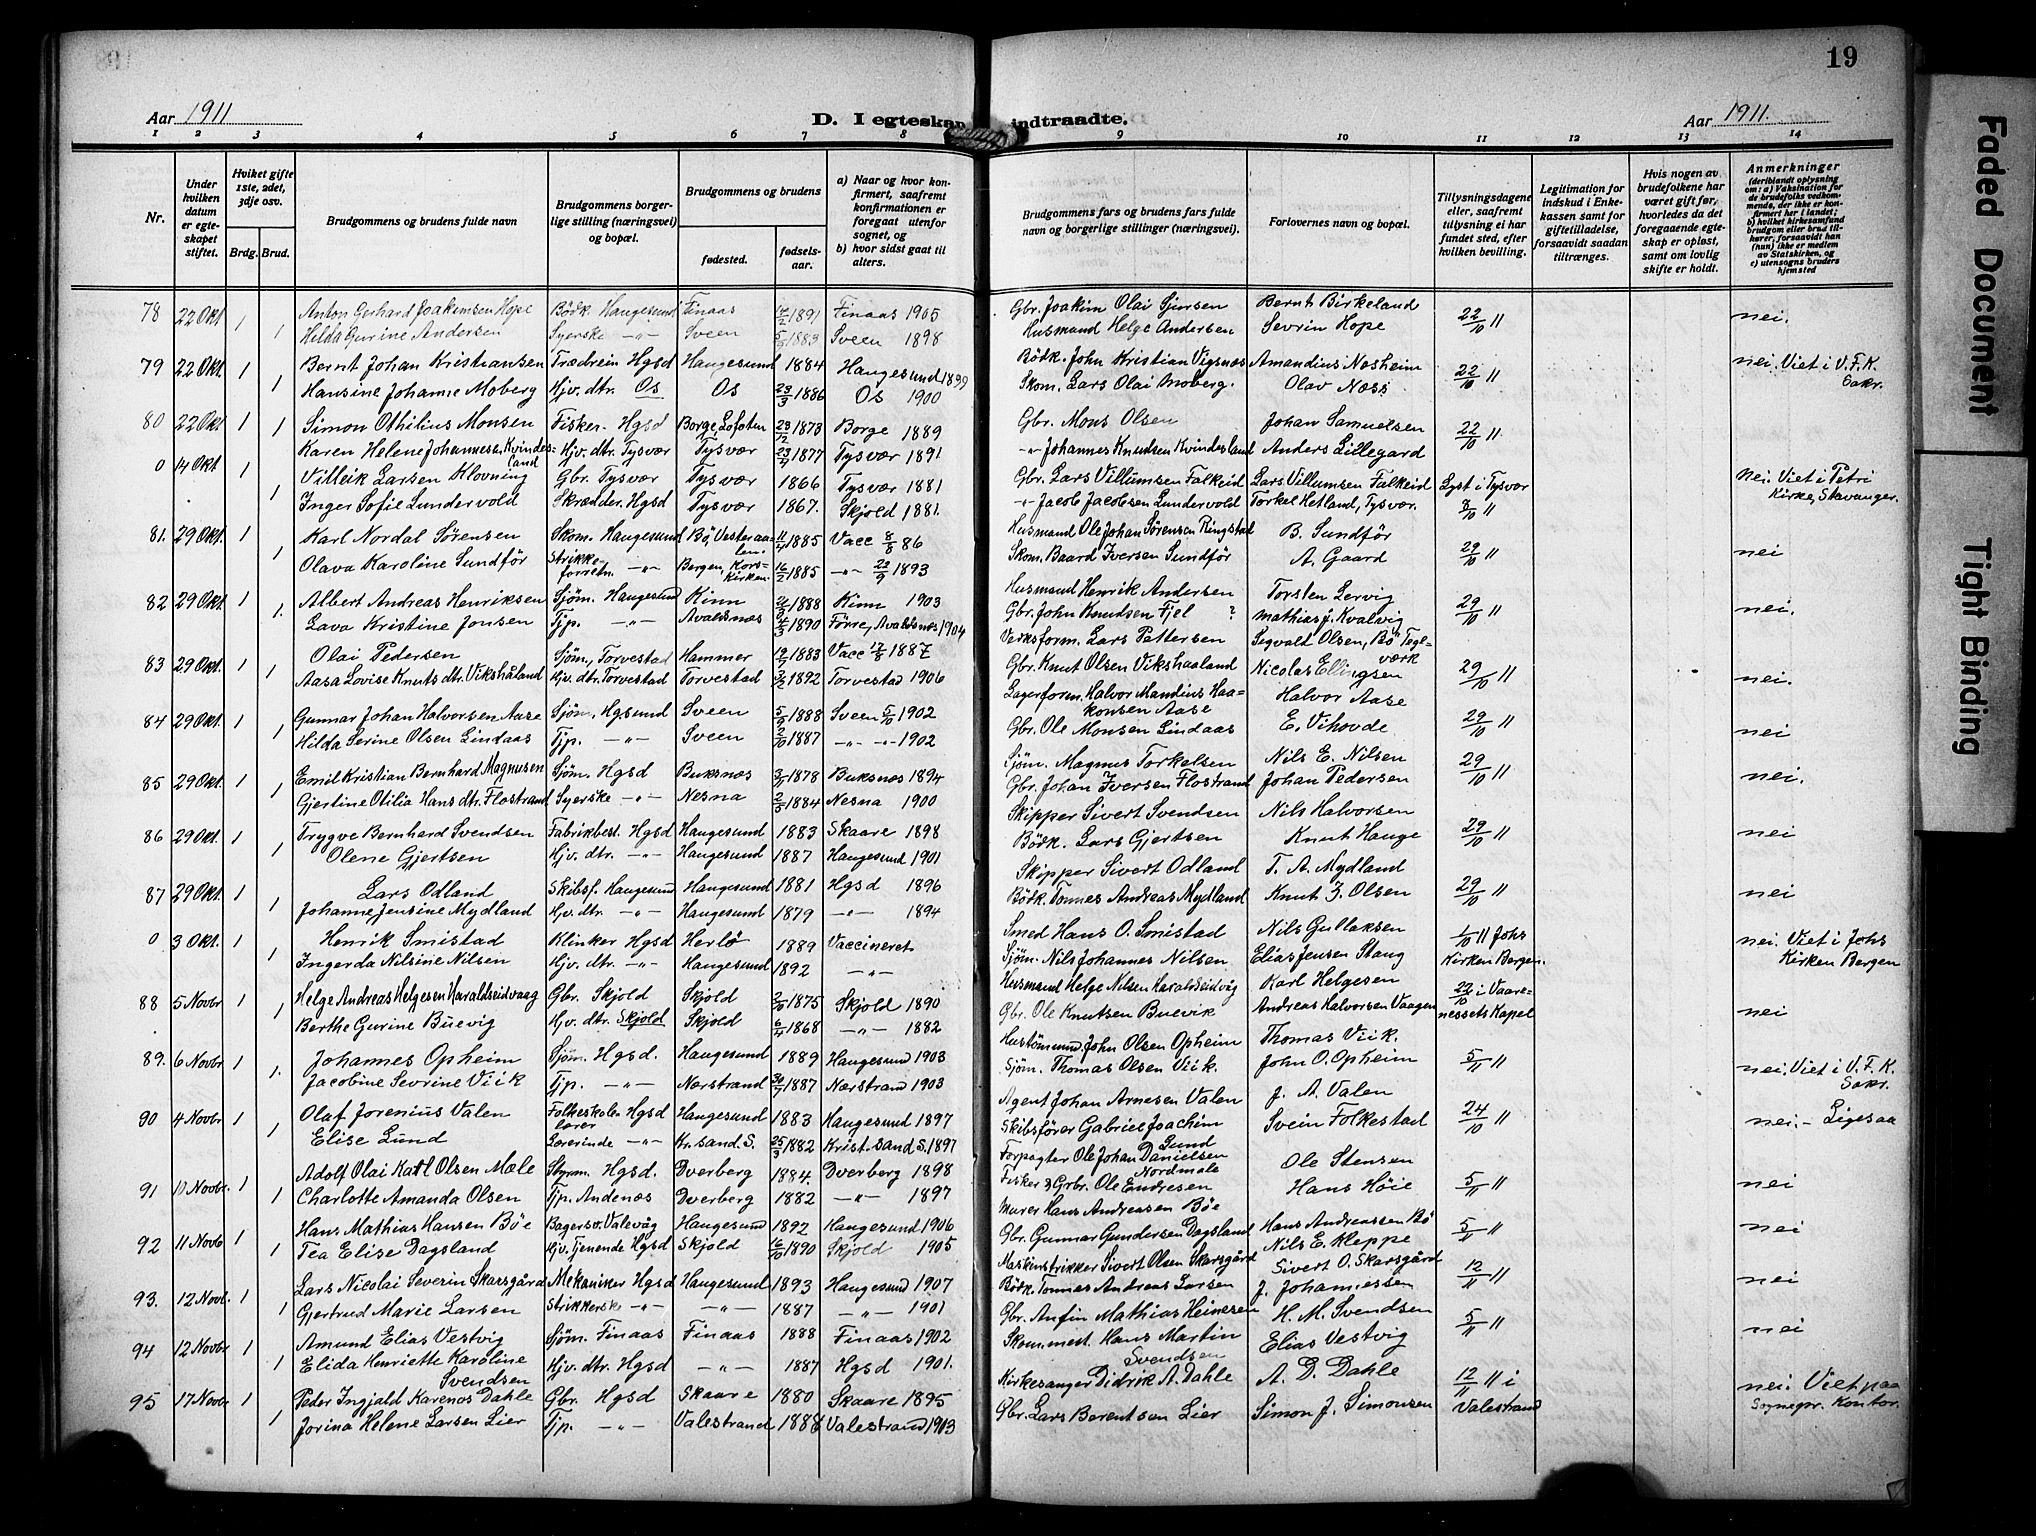 19
Aar 1911
D. I egteskap indtraadte.
Aar 1911.
1 2 3 4 5 6 7 8 9 10 11 12 13 14
Nr.
Under hvilken datum er egteskapet stiftet.
Hviket gifte 1ste, 2det, 3dje osv.
Brdg. Brud.
Brudgommens og brudens fulde navn
Brudgommens borgerlige stilling (næringsvei) og bopæl.
Brudgommens og brudens
fødested. fødselsaar.
a) Naar og hvor konfirmert, saafremt konfirmationen er foregaat utenfor sognet, og
b) hvor sidst gaat til alters.
Brudgommens fars og brudens fars fulde navn og borgerlige stillinger (næringsvei).
Forlovernes navn og bopæl.
Tillysningsdagene eller, saafremt tillysning ei har fundet sted, efter hvilken bevilling.
Legitimation for indskud i Enkekassen samt for giftetilladelse, forsaavidt saadan tiltrænges.
Hvis nogen av brudefolkene har været gift før, hvorledes da det foregaaende egteskap er opløst, samt om lovlig skifte er holdt.
Anmerkninger
(deriblandt oplysning om: a) Vaksination for de brudefolks vedkommende, der ikke er konfirmert her i landet; b) hvilket kirkesamfund brudgom eller brud tilhører, forsaavidt han (hun) ikke er medlem av Statskirken, og c) utensogns bruders hjemsted
78 22 Okt 1 Anton Gerhard Joakimsen Hope Bödk. Haugesund Finaas 14/2 1891 Finaas 1905 Gbr. Joakim Olai Sjursen Bernt Birkeland 22/10 11 nei.
1 Hilda Gurine Andersen Syerske -"- Sveen 5/9 1883 Sveen 1898 Husmand Helge Andersen Sevrin Hope
79 22 Okt. 1 Bernt Johan Kristiansen Trædrein Hgsd Haugesund 1884 Haugesund 1899 Bödk. John Kristian Vigsnæs Amandius Næsheim 22/10 11 nei. Viet i V.F.K. Sakr.
1 Hansine Johanne Moberg Hjv. dtr. Os Os 23/3 1886 Os 1900 Skom. Lars Olai Moberg. Olav Næss
80 22 Okt 1 1 Simon Othilius Monsen Fisker. Hgsd Borge, Lofoten 23/12 1873 Borge 1889 Gbr. Mons Olsen Johan Samuelsen 22/10 11
Karen Helene Johannessen Kvindesland Hjv. dtr. Tysvær Tysvær 23/7 1877 Tysvær 1891 -"- Johannes Knudsen Kvindesland Anders Lillegard
0 14 Okt 1 Villeik Larsen Klovning Gbr. Tysvær Tysvær 1866 Tysvær 1881 Gbr. Lars Villumsen Falkeid Lars Villumsen Falkeid Lyst i Tysvær 8/10 11 nei. Viet i Petri Kirke, Stavanger.
1 Inger Sofie Lundervold Skrædder. Hgsd Tysvær 1867. Skjold 1881. -"- Jacob Jacobsen Lundervold Torkel Hetland, Tysvær.
81. 29 Okt. 1 Karl Nordal Sörensen Skom. Haugesund Bö, Vesteraalen. 11/4 1885 Vacc 8/8 86 Husmand Ole Johan Sörensen Ringstad B. Sundför 29/10 11 nei
1 Olava Karoline Sundför Strikkeforretn. -"- Bergen, Korskirken. 16/2 1885 -"- 22/9 1893 Skom. Baard Iversen Sundför A. Gaard
82 29 Okt. 1 Albert Andreas Henriksen Sjöm. Haugesund Kinn 1888 Kinn 1903 Husmand Henrik Andersen Torsten Lervig 29/10 11 nei.
1. Lava Kristine Jonsen Tjp. -"- Avaldsnæs 1890 Förre, Avaldsnæs 1904 Gbr. John Knudsen Fjel ? Mathias J. Kvalvig
83 29 Okt. 1 Olai Pedersen Sjöm., Torvestad Hammer 1883 Vacc 17/8 1887 Verksform. Lars Pettersen Segvald Olsen, Bö Teglværk 29/10 11 nei.
1 Aasa Lovise Knuts dtr. Vikshåland Hjv. dtr. Torvestad Torvestad 1892 Torvestad 1906 Gbr. Knut Olsen Vikshaaland Nicolas Ellingsen
84 29 Okt. 1 Gunnar Johan Halvorsen Aase Sjöm. Hgsund Sveen 5/9 1888 Sveen 5/10 1902 Lagerform. Halvor Mandius Haakonsen Aase Halvor Aase 29/10 11 nei
1 Hilda Serine Olsen Lindaas Tjp. -"- Sveen 2/10 1887 -"- -"- 1902 Gbr. Ole Monsen Lindaas E. Vihovde
85 29 Okt. 1 Emil Kristian Bernhard Magnusen Sjöm. Hgsd Buksnæs 3/11 1878 Buksnæs 1894 Sjöm. Magnus Torkelsen Nils E. Nilsen 29/10 11 nei.
1 Gjertine Otilia Hans dtr. Flostrand Syerske -"- Nesna 1884 Nesna 1900 Gbr. Johan Iversen Flostrand Johan Pedersen
86 29 Okt. 1 Trygve Bernhard Svendsen Fabrikbest. Hgsd Haugesund 1883 Skaare 1898 Skipper Sivert Svendsen Nils Halvorsen 29/10 11 nei
1 Olene Gjertsen Hjv. dtr. -"- Haugesund 1887 Haugesund 1901 Bödk. Lars Gjertsen Knut Hauge
87 29 Okt. 1 Lars Odland Skibsf. Haugesund Haugesund 1881 Hgsd 1896 Skipper Sivert Odland T. A. Mydland 29/10 11 nei
1 Johanne Jensine Mydland Hjv. dtr. -"- Haugesund 1879 -"- 1894 Bödk. Tönnes Andreas Mydland Knut Z. Olsen
0 3 Okt. 1 Henrik Smistad Klinker Hgsd Herlö 1889 Vaccineret Smed Hans O. Smistad Nils Gullaksen 1/10 11 Johs Kirken Bergen. nei. Viet i Johs Kirken Bergen
1 Ingerda Nilsine Nilsen Hjv. dtr. -"- Haugesund 1892 -"- Sjöm. Nils Johannes Nilsen Elias Jensen Stang
88 5 Novbr 1 Helge Andreas Helgesen Haraldseidvaag Gbr. Skjold Skjold 1875 Skjold 1890 Husmand Helge Nilsen Haraldseidvåg Karl Helgesen 22/10 i Vaarenessets Kapel nei
1 Berthe Gurine Buevig Hjv. dtr. Skjold Skjold 6/4 1868 -"- 1882 Gbr. Ole Knutsen Buevik Andreas Halvorsen Vaagen
89. 6 Novbr 1 Johannes Opheim Sjöm. Hgsd. Haugesund 1889 Haugesund 1903 Hustömmand John Olsen Opheim Thomas Viik. 5/11 11 nei. Viet i V.F.K. Sakr.
1. Jacobine Sevrine Viik Tjp. -"- Nærstrand 30/7 1887 Nærstrand 1903 Sjöm. Thomas Olsen Viik. John O. Opheim
90 4 Novbr 1 Olaf Jorenius Valen Folkeskolelærer Hgsd Haugesund 1883 Haugesund 1897 Agent Johan Arnesen Valen J. A. Valen 24/10 11 nei. - Ligesaa
1 Elise Lund Lærerinde -"- Kr.sand S. 25/3 1882 Krist.sand S. 1897 Skibsförer Gabriel Joachim Lund Svein Folkestad
91 10 Novbr. 1 Adolf Olai Karl Olsen Mæle Styrm. Hgsd. Dverberg 1884. Dverberg 1898 Forpagter Ole Johan Danielsen Nordmæle Ole Stensen 5/11 11 nei
1 Charlotte Amanda Olsen Tjp. Andenæs Dverberg 1882 -"- 1897 Fisker & Grbr. Ole Endresen Hans Höie
92 11 Novb 1 Hans Mathias Hansen Böe Bagersv. Valevåg Haugesund 1892 Haugesund 1906 Murer Hans Andreasen Böe Hans Andreassen Bö 5/11 11 nei
1 Tea Elise Dagsland Hjv. Tjenende Hgsd Skjold 16/10 1890 Skjold 1905 Gbr. Gunnar Gundersen Dagsland Nils E. Kleppe
93. 12 Novb. 1 Lars Nicolai Severin Skarsgård Mekaniker Hgsd Haugesund 1893 Haugesund 1907 Maskinstrikker Sivert Olsen Skarsgård Sivert O. Skarsgård 12/11 11 nei
1 Gjertrud Marie Larsen Strikkerske -"- -"- 1887 -"- 1901 Bödk. Tönnes Andreas Larsen J. Johannessen
94 12 Novbr 1 Amund Elias Vestvig Sjöm. Finaas Finaas 1888 Finaas 1902 Gbr. Anfin Mathias Heinesen H. M. Svendsen 5/11 11 nei
1 Elida Henriette Karoline Svendsen Hjv. dtr. Hgsd -"- 1887 Hgsd 1901. Skommest. Hans Martin Svendsen Elias Vestvig
95 17 Novbr 1 Peder Ingjald Karenos Dahle Gbr. Hgsd Skaare 1880 Skaare 1895 Kirkesanger Didrik A. Dahle A. D. Dahle 12/11 11 i Valestrand nei. Viet paa Sognepr. Kontor.
1 Jorina Helene Larsen Lier Tjp. -"- Valestrand 1888 Valestrand 1903 Gbr. Lars Berentsen Lier Simon J. Simonsen
Faded Document
Tight Binding